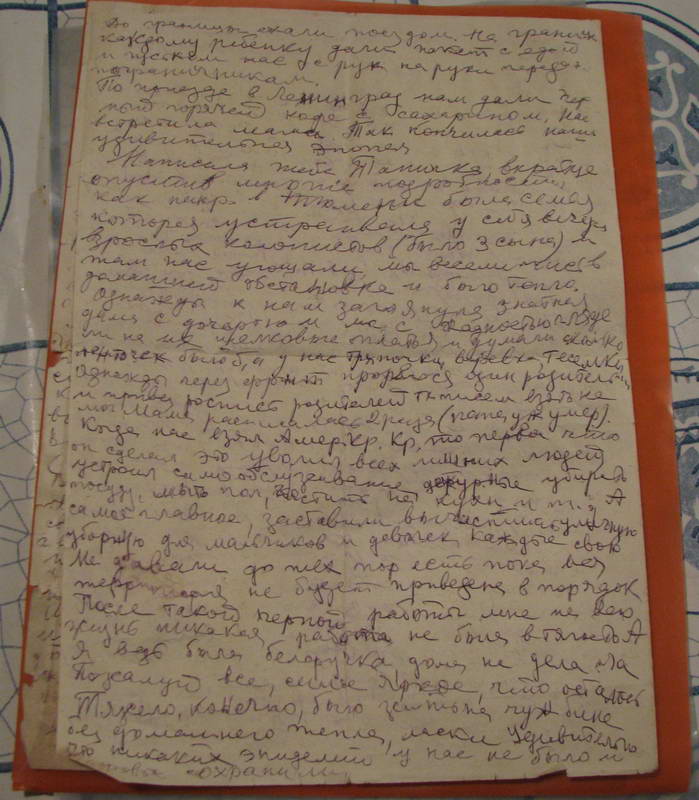 До границы ехали поездом. На границе
каждому ребенку дали пакет с едой
и пустили нас с рук на руки передав
пограничникам.
По приезде в Ленинград нам дали чер
ный горячей кофе с сахарином, нас
встретила мама. Так кончилась наша
удивительная эпопея
Написала тебе Таничка, вкратце
опустив многие подробности,
как напр. в Тюмени была семья
которая устраивала у себя вечера
взрослых колонистов (было 3 сына) и
там нас угощали, мы веселились в
домашней обстановке и было тепло.
Однажды к нам заглянула знатная
дама с дочерью и мы с жадностью гляде
ли на их шелковые платья и думали сколько
ленточек было б, а у нас тряпочки, веревка, тесемки
Однажды через фронт прорвался один родитель
и привез роспись родителей
Мама расписалась 2 раза (папа уж умер).
Когда нас взял Амер. Кр. Кр, то первое что
он сделал это уволил всех лишних людей
устроил самообслуживание дежурные убирать
посуду, мыть пол, чистить на кухни и т. д А
самое главное, заставили вычистить уличную
уборную для мальчиков и девочек каждые свою
Не давали до тех пор есть пока вся
территория не будет приведена в порядок
После такой черной работы мне на всю
жизнь никакая работа не была в тягость А
я ведь была белоручка дома не делала
Пожалуй все, самое яркое, что осталось
Тяжело, конечно, было жить на чужбине
без домашнего тепла, ласки Удивительно
что никаких эпидемий у нас не было и
сохранили